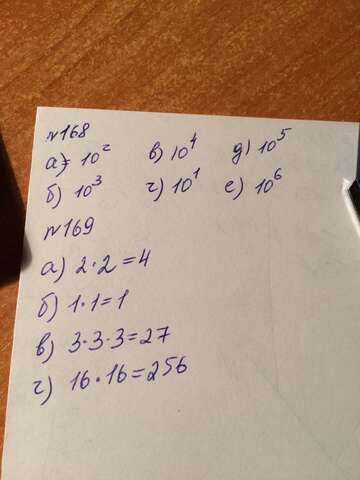 №168
а) = 10² в) 10⁴ д) 10⁵
б) 10³ г) 10¹ е) 10⁶
№169
а) 2·2=4
б) 1·1=1
в) 3·3·3=27
г) 16·16=256